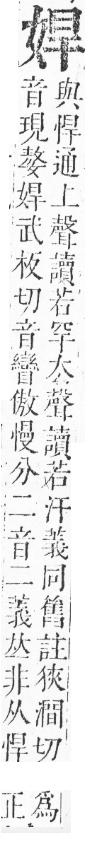 婩
與悍通上聲讀若罕去聲讀若汗義同舊註狹澗切
音現嫯婩武板切音矕傲慢分二音二義𠀤非从悍
爲
正